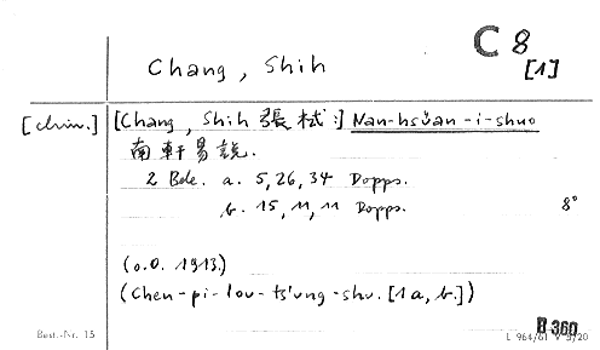 C 8
[1]
Chang, Shih
[chin.] [Chang, Shih 張栻:] Nan-hsüan-i-shuo
南軒易説.
2 Bde. a. 5, 26, 34 Dopps.
b. 15, 11, 11 Dopps. 8°
(o.O. 1913.)
(Chen-pi-lou-ts'ung-shu. [1a, b.])
B 360
Best.-Nr. 15 L 964/61 V 5/20